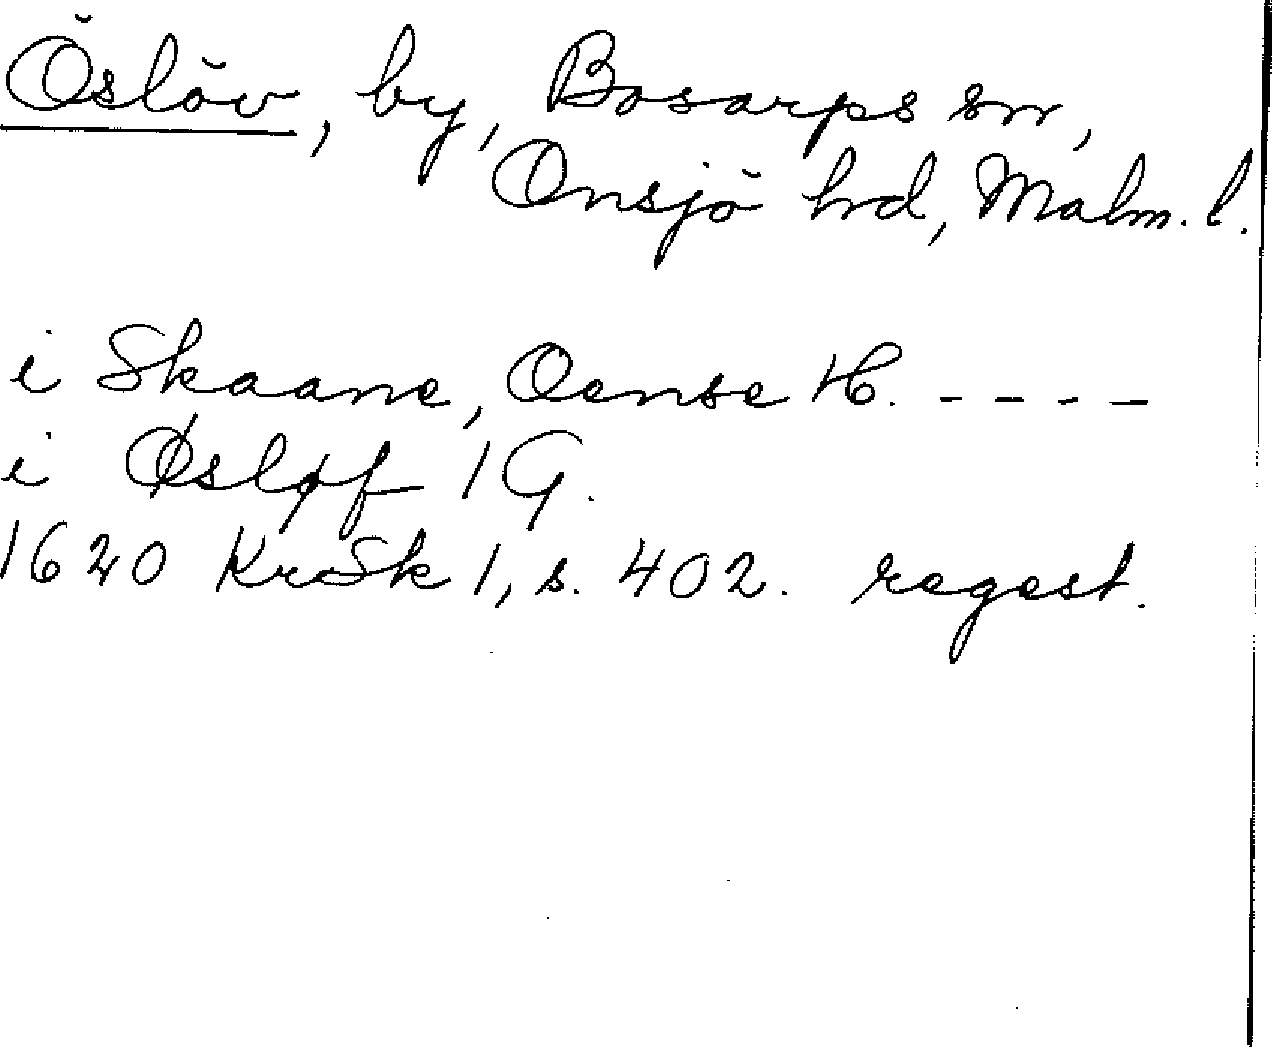 Öslöv, by, Bosarps sn,
Onsjö hrd, Malm. l.
i Skaane, Oense H. - - - -
i Øsløf 1 G.
1620 KrSk 1, s. 402. regest.